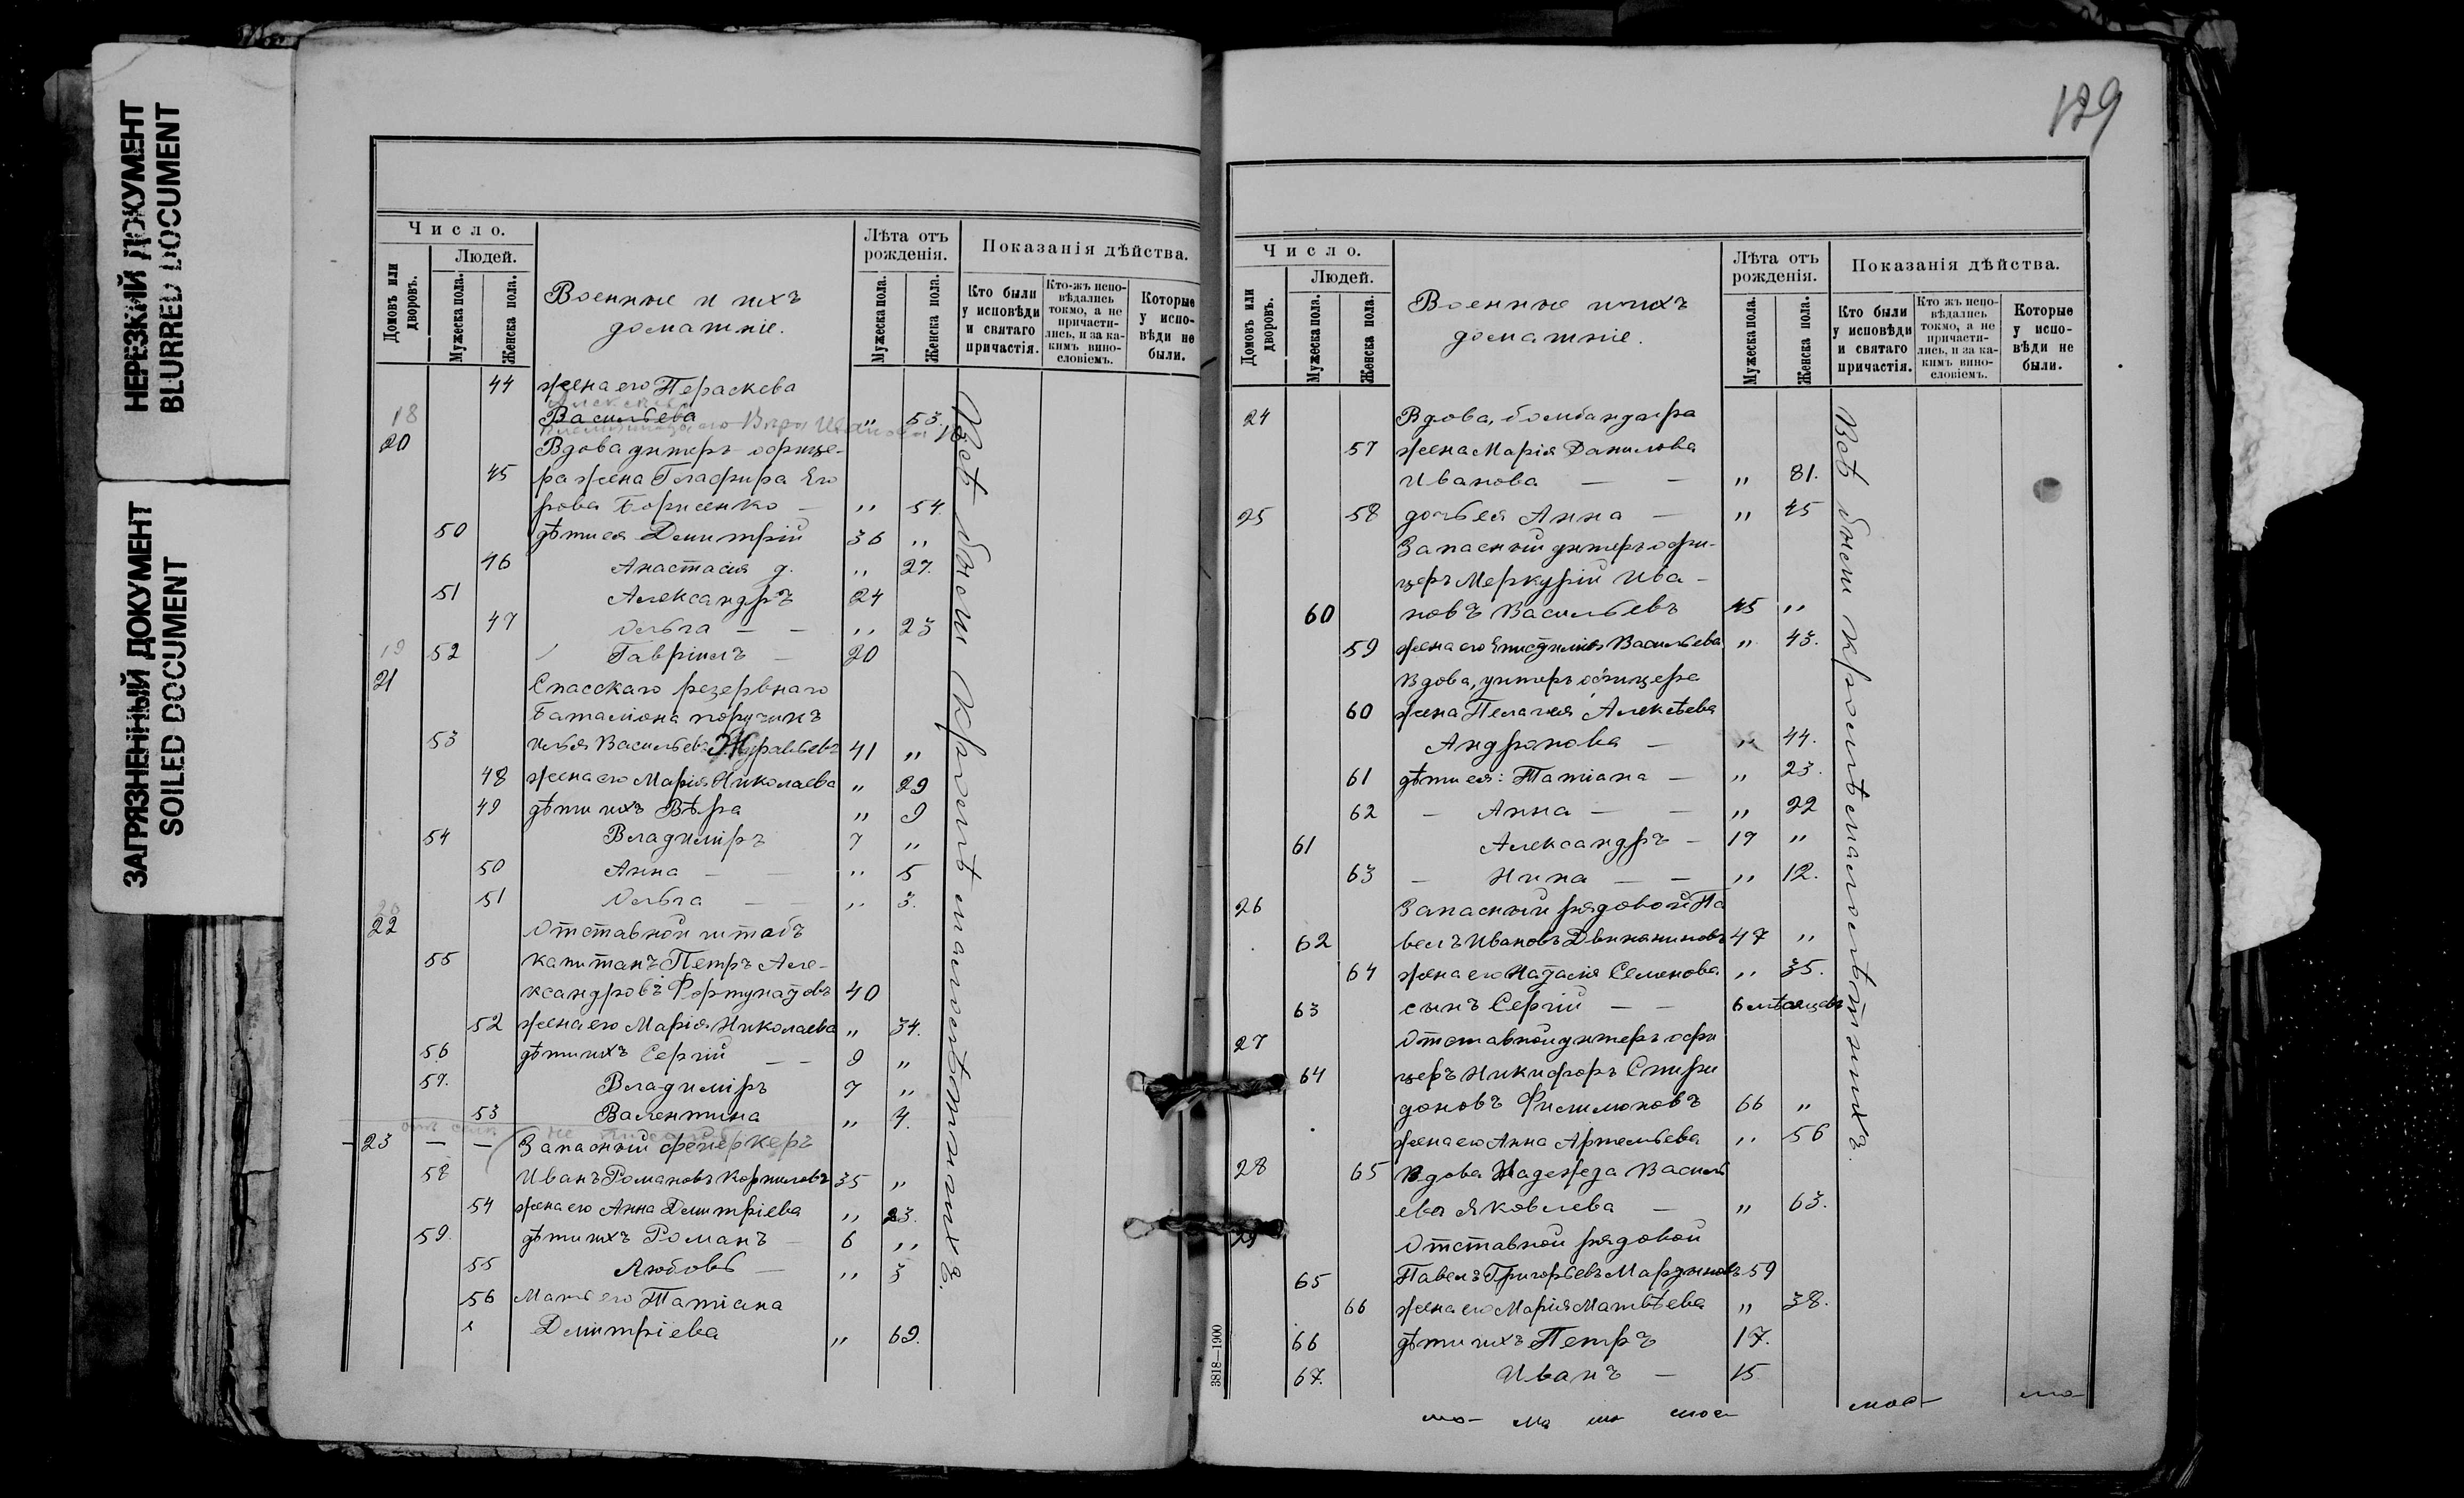 НЕРЕЗКИЙ ДОКУМЕНТ
BLURRED DOCUMENT
ЗАГРЯЗНЕННЫЙ ДОКУМЕНТ
SOILED DOCUMENT
Число.
Людей.
Домовъ или дворовъ.
Мужеска пола.
Женска пола.
Военные и ихъ
домашніе.
Лѣта отъ рожденія.
Мужеска пола.
Женска пола.
Показанія дѣйства.
Кто были у исповѣди и святаго причастія.
Кто-жъ исповѣдались токмо, а не причастились, и за какимъ винословіемъ.
Которые у исповѣди не были.
44 жена его Пераскева
18 Васильева „ 53.
20 Вдова унтеръ-офице-
45 ра жена Глафира Его
рова Борисенко — „ 54.
50 дѣти ея Димитрій 36 „
46 Анастасія д. „ 27.
51 Александръ 24
47 Ольга — — „ 23
19 52 Гавріилъ — 20
21 Спасскаго резервнаго
баталіона поручикъ
53 Илья Васильевъ Журавлевъ 41 „
48 жена его Марія Николаева „ 29
49 дѣти ихъ Вѣра „ 9
54 Владиміръ 7 „
50 Анна — — „ 5
51 Ольга — — „ 3.
20
22 Отставной штабъ
55 капитанъ Петръ Але-
ксандровъ Фортунатовъ 40
52 жена его Марія Николаева „ 34.
56 дѣти ихъ Сергій — — 9 „
57. Владиміръ 7 „
53 Валентина „ 4.
- 23 — — Запасный фейеркеръ
58 Иванъ Романовъ Корниловъ 35 „
54 жена его Анна Димитріева „ 23.
59. дѣти ихъ Романъ — 6 „
55 Любовь — „ 3
56 Мать его Татіана
Димитріева „ 69.
Всѣ были кромѣ малолѣтнихъ.
129
Число.
Людей.
Домовъ или дворовъ.
Мужеска пола.
Женска пола.
Военные и ихъ
домашніе.
Лѣта отъ рожденія.
Мужеска пола.
Женска пола.
Показанія дѣйства.
Кто были у исповѣди и святаго причастія.
Кто жъ исповѣдались токмо, а не причастились, и за какимъ винословіемъ.
Которые у исповѣди не были.
24 Вдова, бомбандира
57 жена Марія Данилова
Иванова — — „ 81.
25 58 дочь ея Анна — „ 45
Запасный унтеръ офи-
церъ Меркурій Ива-
60 новъ Васильевъ 45 „
59 жена его Васильева „ 43.
Вдова, унтеръ офицера
60 жена Пелагея Алексѣева
Андронова — „ 44.
61 дѣти ея: Татіана — „ 23.
62 — Анна — — „ 22
61 Александръ — 19 „
63 — Нина — — „ 12.
26 Запасный рядовой Па
62 велъ Ивановъ 47 „
64 жена его Наталія Семенова „ 35.
63 сынъ Сергій — — 6 мѣсяцевъ
27 Отставной унтеръ офи
64 церъ Никифоръ Спири
доновъ Филимоновъ 66 „
жена его Анна Артемьева „ 56
28 65 Вдова Надежда Василь
ева Яковлева — „ 63.
29 Отставной рядовой
65 Павелъ Григорьевъ 59
66 жена его Марія Матвѣева „ 38.
66 дѣти ихъ Петръ 17.
67. Иванъ — 15
Всѣ были кромѣ малолѣтнихъ.
3818—1900